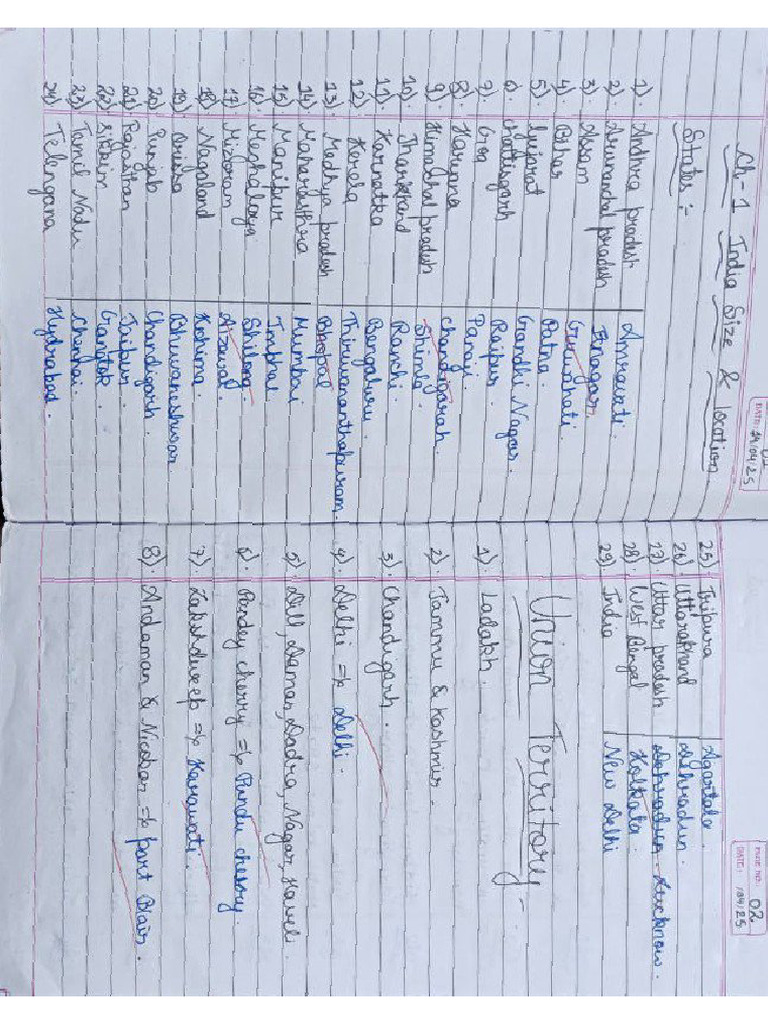 DATE: 19/04/25
Ch-1 India Size & location
States :-
1). Andhra pradesh Amravati.
2). Arunanchal pradesh Itnagar.
3). Assam Guwahati.
4). Bihar Patna.
5) Gujrat Gandhi Nagar.
6. Chattisgarh Raipur.
7). Goa Panaji.
8). Haryana Chandigarah
9). Himachal pradesh Shimla.
10). Jharkhand Ranchi.
11). Karnatka Bengaluru.
12). Kerela Thiruvananthapuram.
13). Madhya pradesh Bhopal
14). Maharashthra Mumbai
15). Manipur Imphal
16). Meghalaya Shilong
17). Mizoram Aizawal.
18) Nagaland Kohima.
19). Orissa Bhuvaneshwar.
20) Punjab Chandigarh.
21). Rajasthan Jaipur.
22). Sikkim Gangtok.
23) Tamil Nadu Chennai.
24) Telengana Hydrabad.
PAGE NO: 02
DATE: /04/25
25) Tripura Agartala.
26) Uttarakhand Dehradun.
27) Uttar pradesh Dehradun - Lucknow.
28). West Bengal Kolkata.
29). India New Delhi
Union Territorey
1) Ladakh.
2). Jammu & Kashmir.
3). Chandigarh.
4). Delhi => Delhi.
5). Diu, Daman, Dadra, Nagar, Haveli.
6). Pondey cherry => Pundu cherry.
7). Lakshdweep => Karawati.
8). Andaman & Nicobar => port Blair.